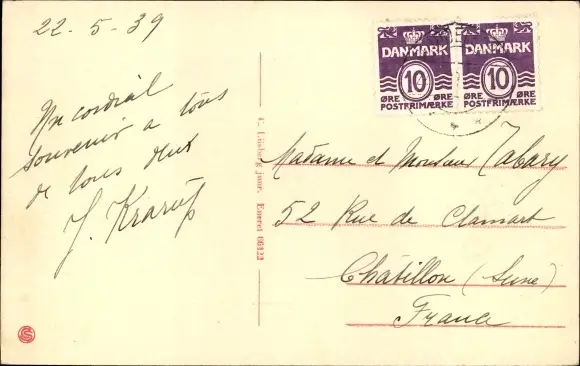 22-5-39
Un cordial
souvenir a tous
de tous deux
J. Krarup
DANMARK
10
ØRE ØRE
POSTFRIMÆRKE
DANMARK
10
ØRE ØRE
POSTFRIMÆRKE
Madame et Monsieur Tabary
52 Rue de Clamart
Châtillon (Seine)
France
Eneret 06123